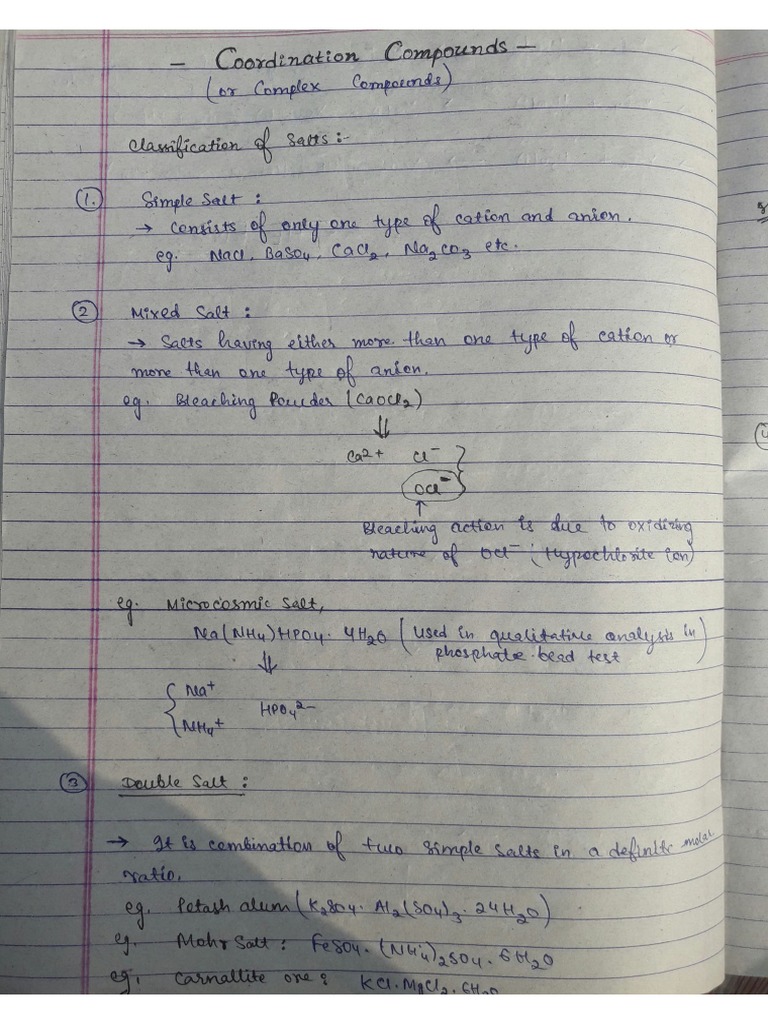 - Coordination Compounds -
(or Complex Compounds)
Classification of Salts :-
1. Simple Salt :
→ Consists of only one type of cation and anion.
eg. NaCl, BaSO4, CaCl2, Na2CO3 etc.
2 Mixed Salt :
→ Salts having either more than one type of cation or
more than one type of anion.
eg. Bleaching Powder (CaOCl2)
⇓
Ca2+ Cl- }
OCl-
↑
Bleaching action is due to oxidizing
nature of OCl- (Hypochlorite ion)
eg. Microcosmic Salt,
Na(NH4)HPO4·4H2O (Used in qualitative analysis in
phosphate-bead test)
⇓
{ Na+ HPO4 2-
NH4+
3 Double Salt :
→ It is combination of two simple salts in a definite molar
ratio.
eg. Potash alum (K2SO4·Al2(SO4)3·24H2O)
eg. Mohr Salt : FeSO4·(NH4)2SO4·6H2O
eg. Carnallite one : KCl·MgCl2·6H2O